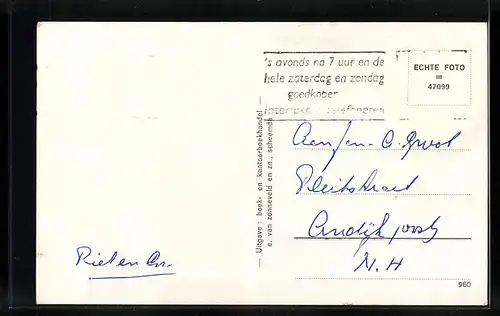 's avonds na 7 uur en de
hele zaterdag en zondag
goedkoper
interlokaal telefoneren
ECHTE FOTO
47099
— Uitgave : boek- en kantoorboekhandel —
e. van zonneveld en zn., scheemda
Aan fam. C. Groot
Andijk
N.H
Riet en Cor.
960